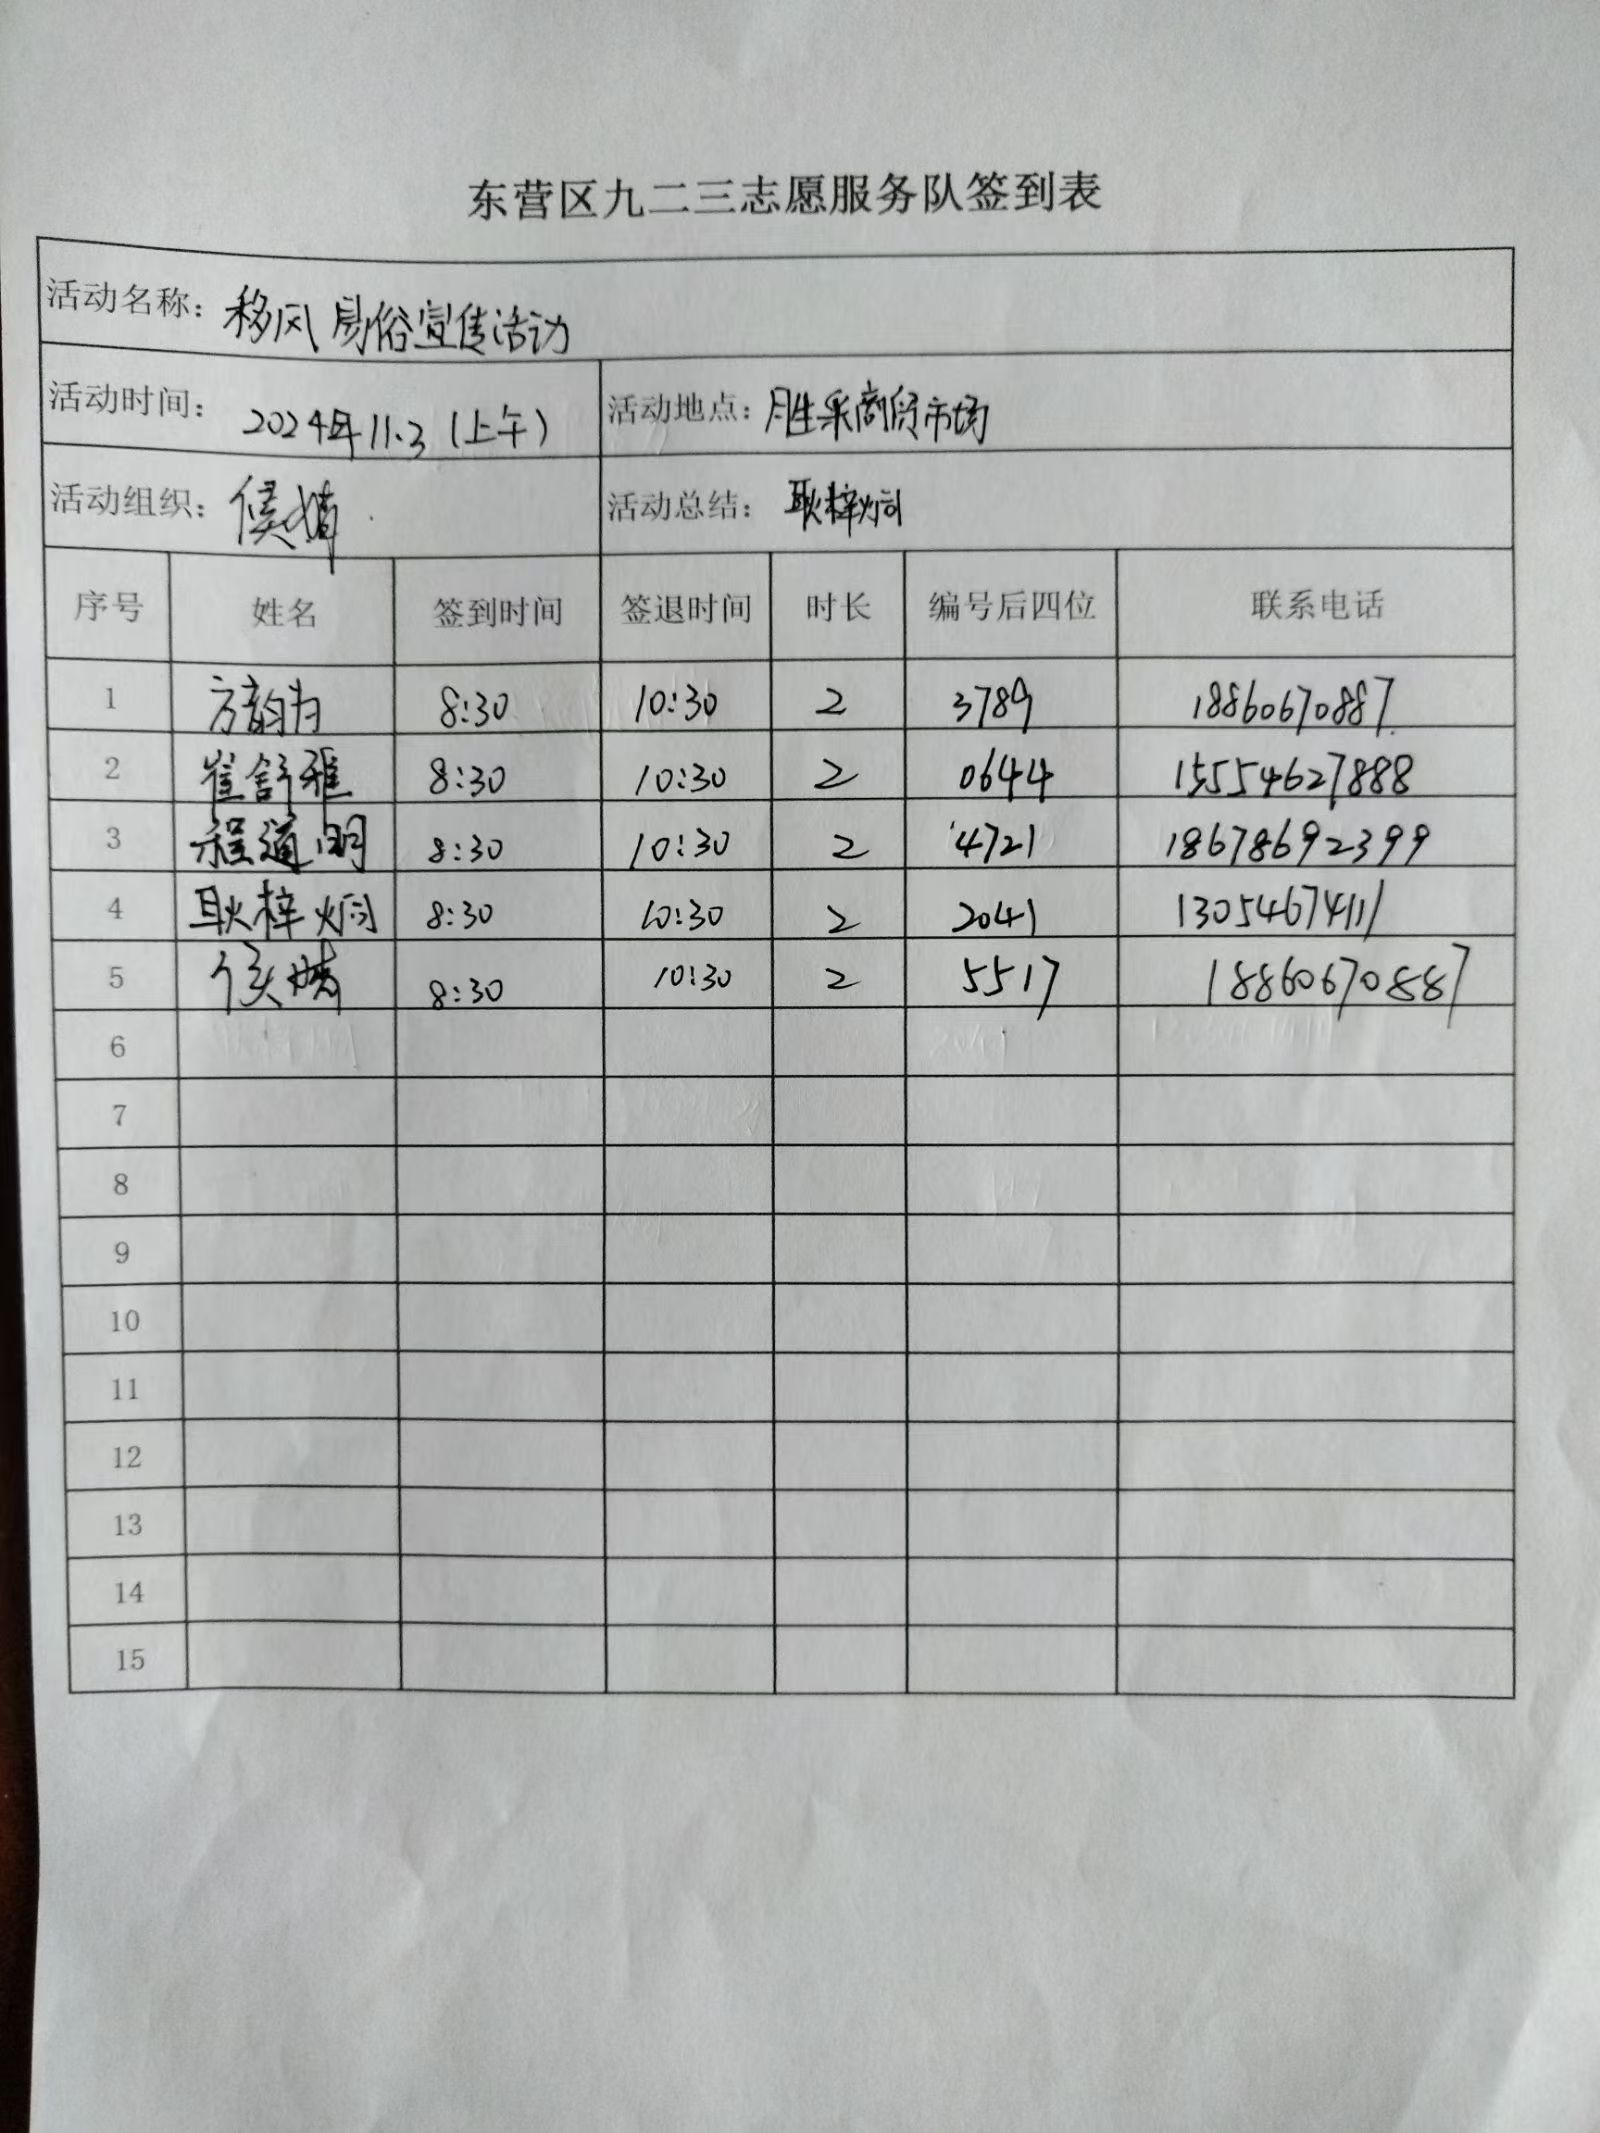 东营区九二三志愿服务队签到表
活动名称：移风易俗宣传活动
活动时间：2024年11.3（上午） 活动地点：胜采商贸市场
活动组织：侯婧 活动总结：耿梓炯
序号 姓名 签到时间 签退时间 时长 编号后四位 联系电话
1 方韵为 8:30 10:30 2 3789 18860670887
2 崔舒雅 8:30 10:30 2 0644 15554627888
3 程道明 8:30 10:30 2 4721 18678692399
4 耿梓炯 8:30 10:30 2 2041 13054674111
5 侯婧 8:30 10:30 2 5517 18860670887
6
7
8
9
10
11
12
13
14
15